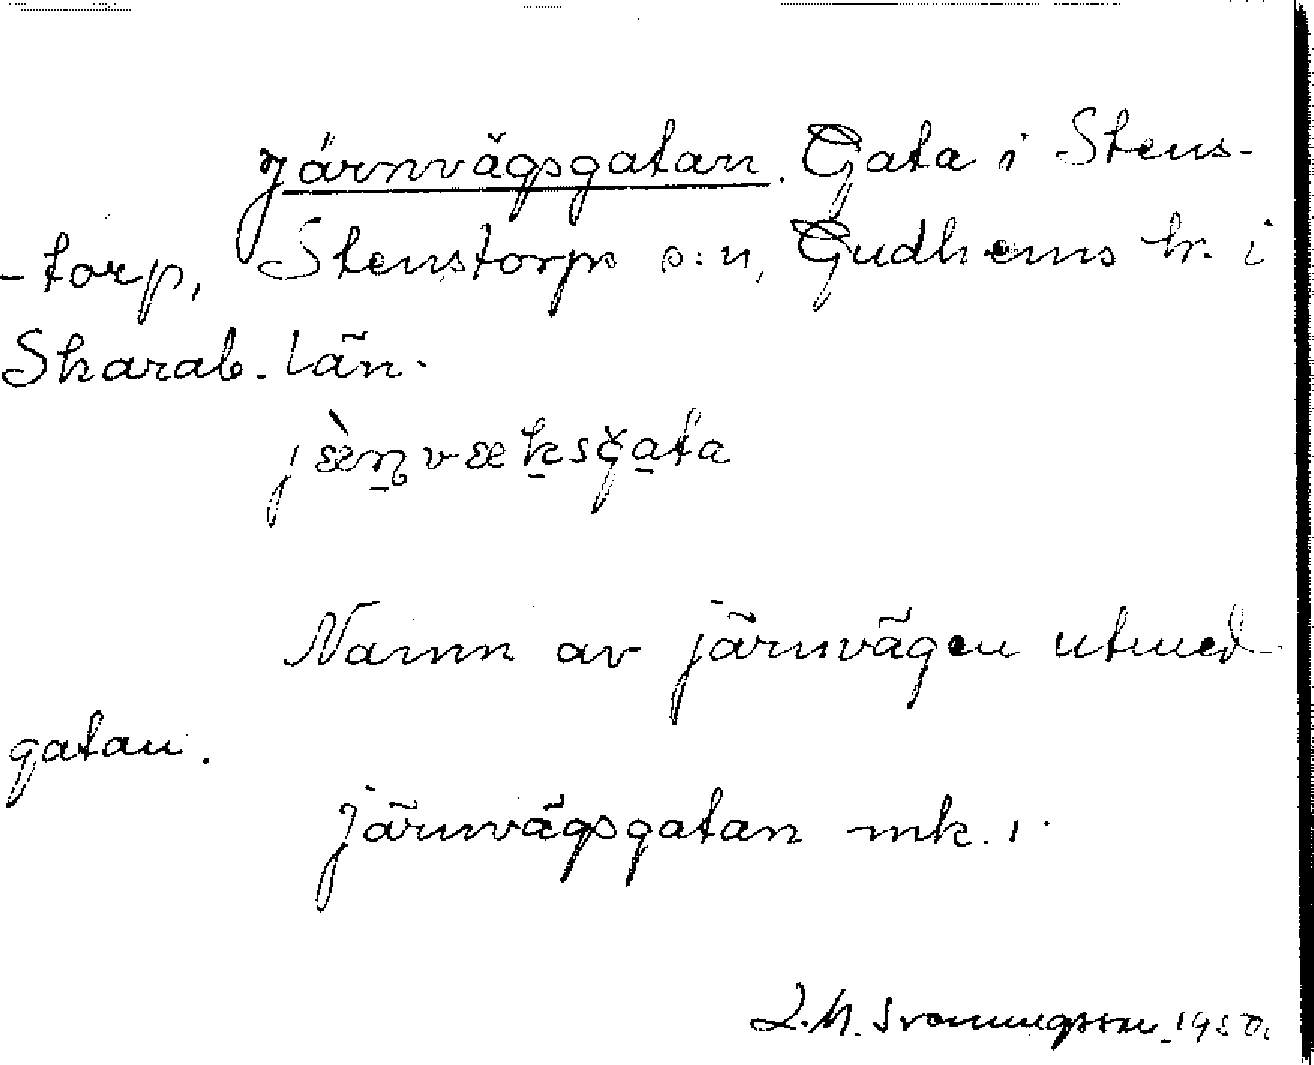 Järnvägsgatan. Gata i Stens-
-torp, Stenstorps s:n, Gudhems hr. i
Skarab. län.
Namn av järnvägen utmed
gatan.
Järnvägsgatan mk. 1.
1950.